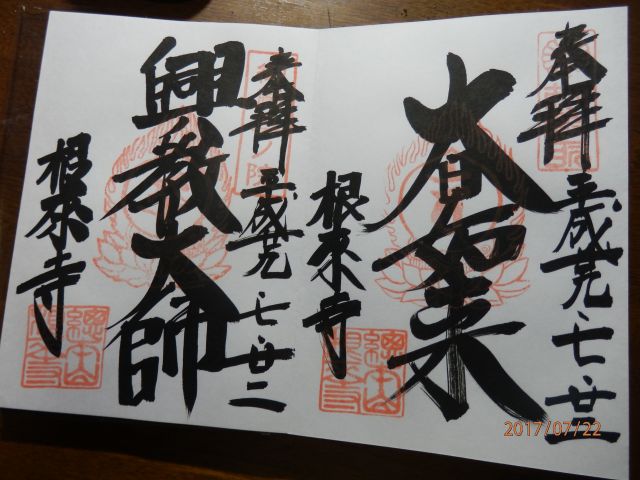 奉拝
平成廿九、七、廿二
大日如来
根来寺
奉拝
平成廿九、七、廿二
興教大師
根来寺
2017/07/22